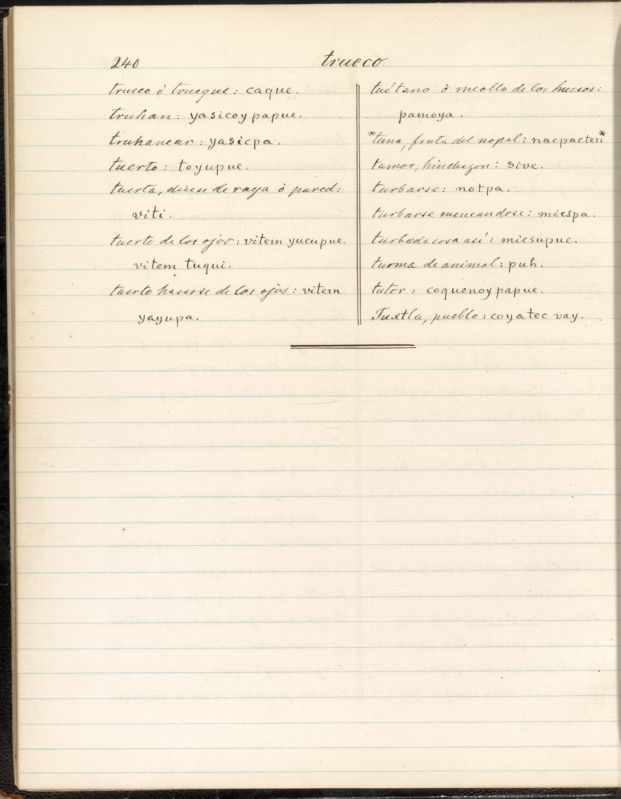 240
trueco
trueco ó trueque: caque.
truhan: yasicoypapue.
truhanear: yasicpa.
tuerto: toyupue.
tuerta, dicen de raya ò pared:
viti.
tuerto de los ojos: vitem yucupue.
vitem tuqui.
tuerto hacerse de los ojos: vitem
yayupa.
tuétano ò meollo de los huesos:
pamoya.
*tuna, fruta del nopal: nacpacten*
tumor, hinchazon: sive.
turbarse: notpa.
turbarse meneandose: micspa.
turbada cosa así: micsupue.
turma de animal: puh.
tutor: coquenoypapue.
Tuxtla, pueblo: coyatec vay.